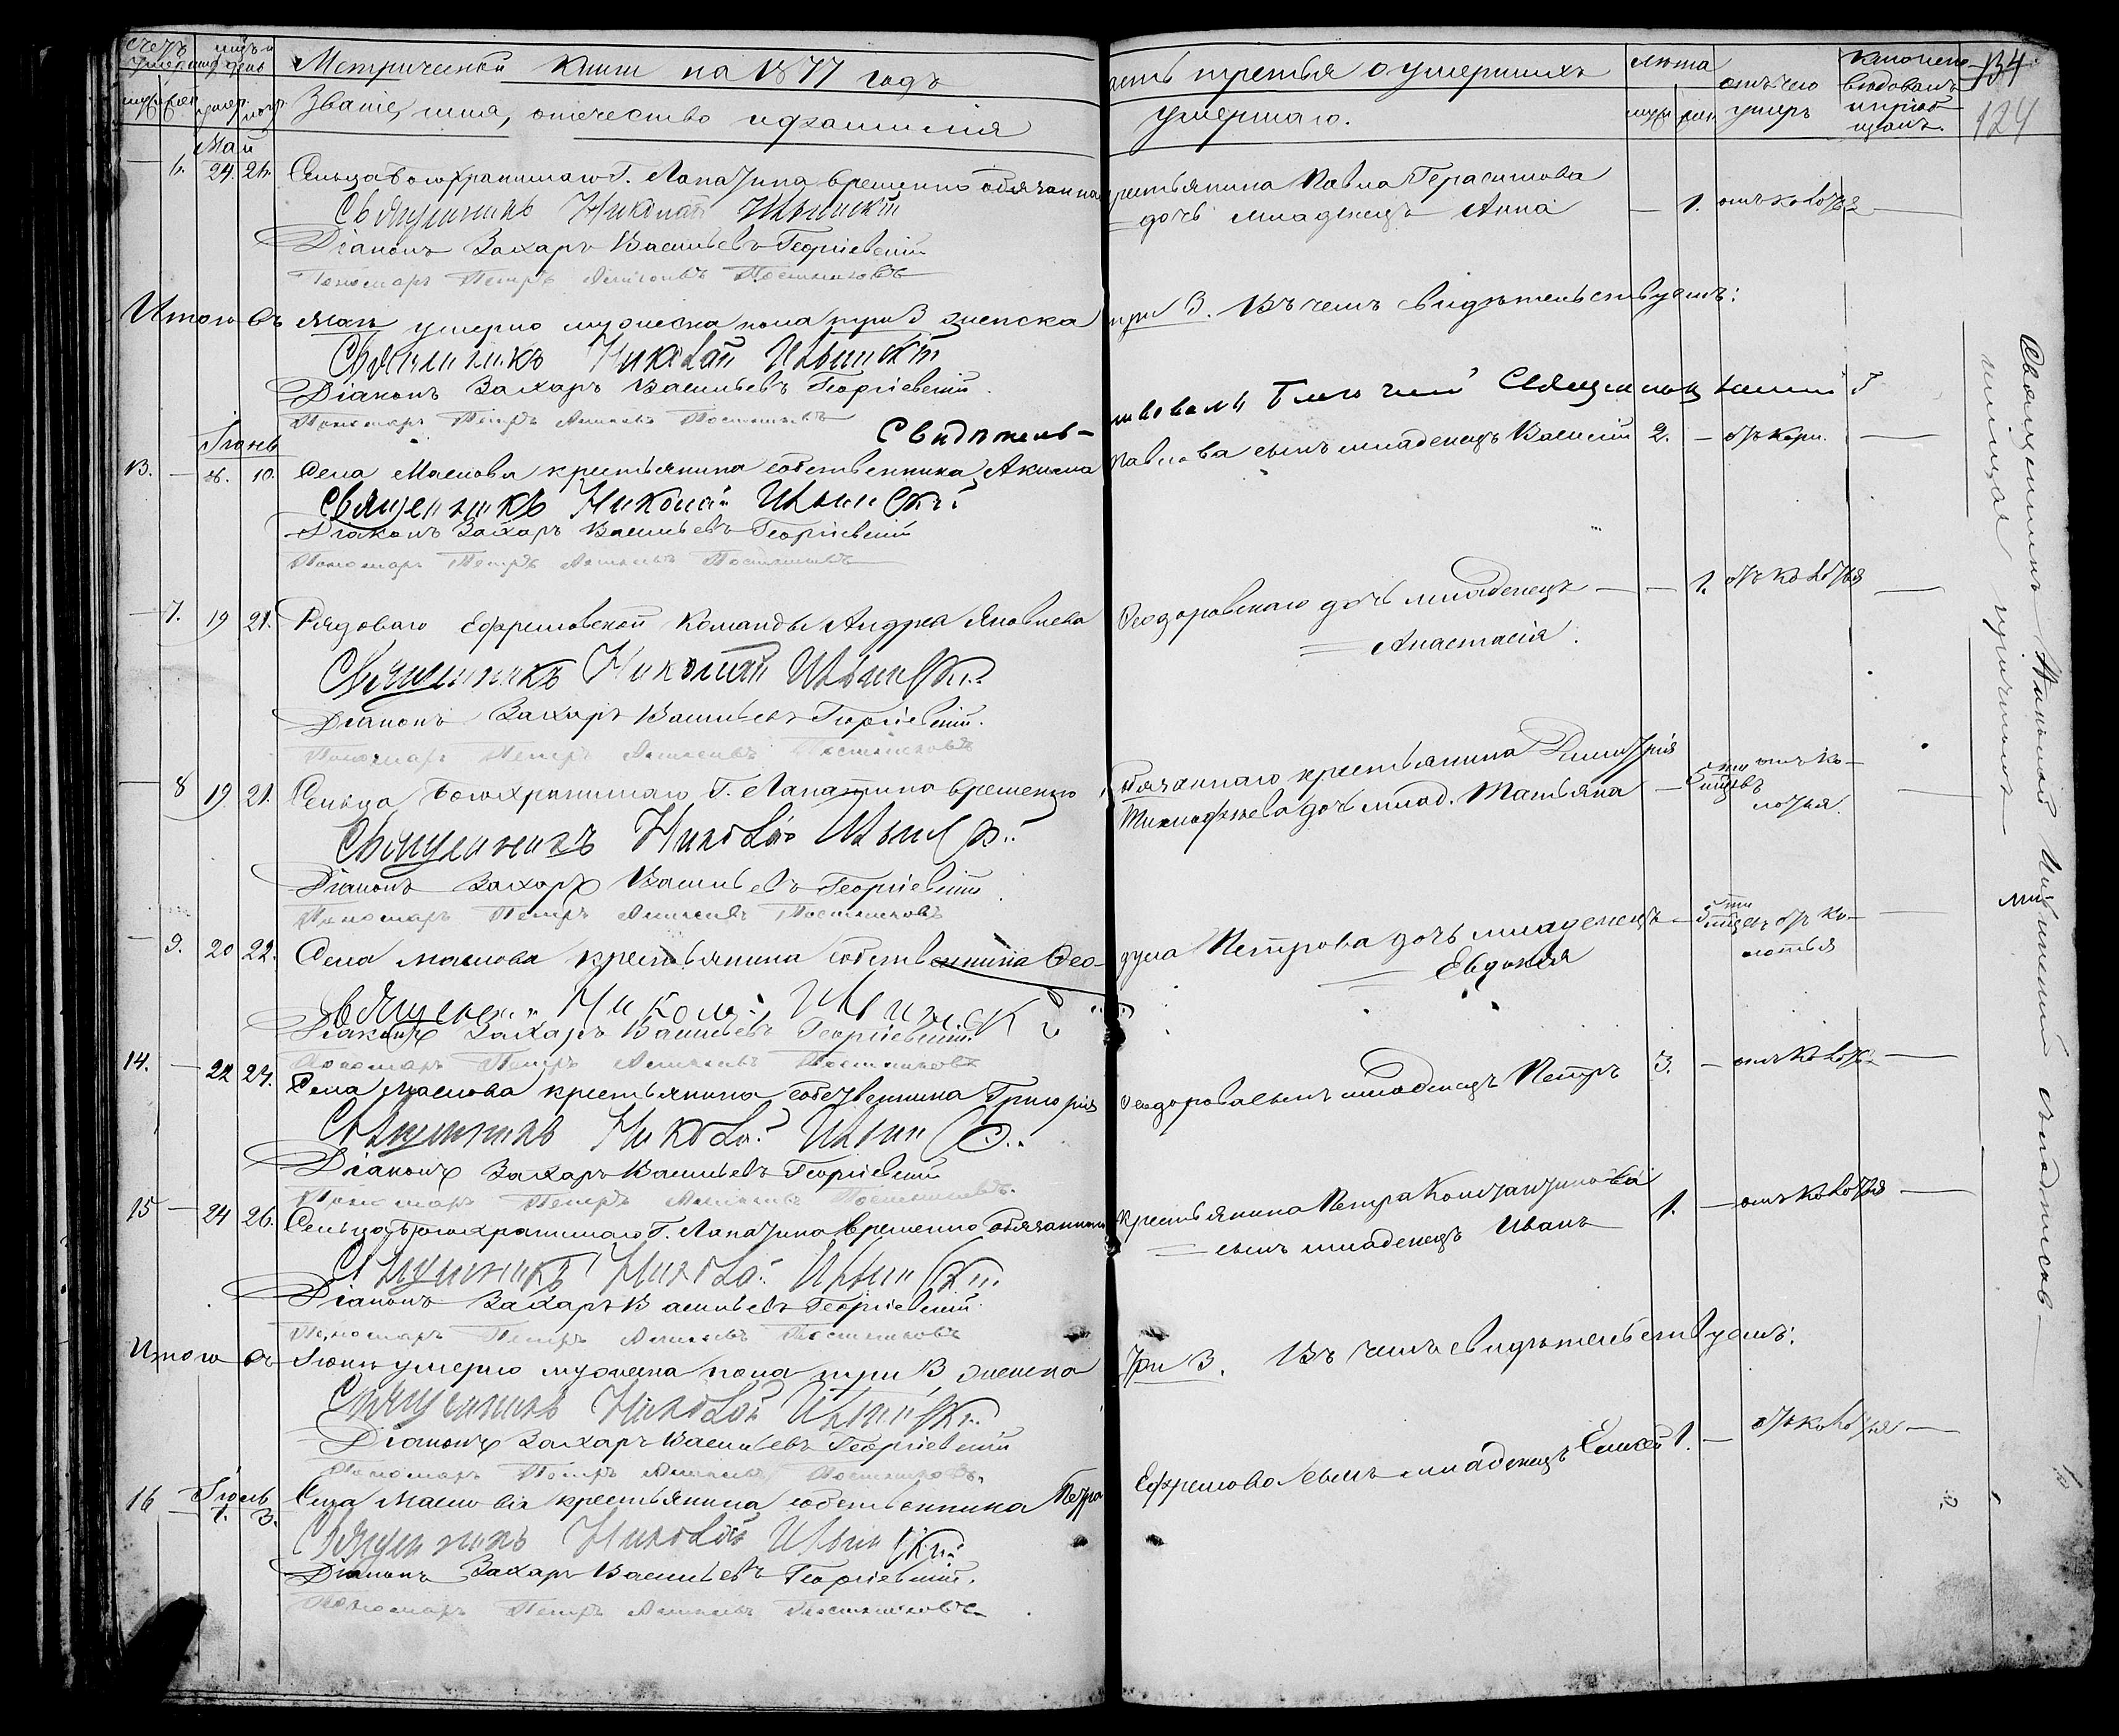 счетъ умершихъ
мцъ и день
Метрической книги на 1877 годъ
часть третья о умершихъ
лѣта
отъ чего умеръ
134
124
Званіе, имя, отечество и фамилія
умершаго.
Май
6. 24. 26. Сельца Богохранимаго Г. Лапатина временно обязаннаго
крестьянина Павла Герасимова
дочь младенецъ Анна — 1. отъ колотья —
Священникъ Николай Ильинскій
Діаконъ Захаръ Васильевъ Георгіевскій
Пономарь Петръ Постниковъ
Итого въ маѣ умерло мужеска пола три 3 женска
три 3. Въ чемъ свидѣтельствуемъ:
Священникъ Николай Ильинскій
Діаконъ Захаръ Васильевъ Георгіевскій
Пономарь Петръ Постниковъ
Свидѣтель-
ствовалъ Благочинный Священникъ
Іюнь
13. — 8. 10. Села Маслова крестьянина собственника Акима
Павлова сынъ младенецъ Василій 2. — отъ кори. —
Священникъ Николай Ильинскій
Діаконъ Захаръ Васильевъ Георгіевскій
Пономарь Петръ Постниковъ
— 7. 19 21. Рядоваго Ефремовской Команды Андрея Яковлева
Ѳеодоровскаго дочь младенецъ — — 1. отъ колотья —
Анастасія.
Священникъ Николай Ильинскій
Діаконъ Захаръ Васильевъ Георгіевскій.
Пономарь Петръ Постниковъ
— 8 19 21. Сельца Богохранимаго Г. Лапатина временно
обязаннаго крестьянина Димитрія
дочь млад. Татьяна — отъ ко-
лотья.
Священникъ Николай Ильинскій
Діаконъ Захаръ Васильевъ Георгіевскій
Пономарь Петръ Постниковъ
— 9. 20 22. Села Маслова крестьянина собственника Ѳео-
дула Петрова дочь младенецъ — отъ ко-
Евдокія
лотья
Священникъ Николай Ильинскій
Діаконъ Захаръ Васильевъ Георгіевскій
Пономарь Петръ Постниковъ
14. — 22 24. Села Маслова крестьянина собственника Григорія
Ѳеодорова сынъ младенецъ Петръ 3. — отъ колотья —
Священникъ Николай Ильинскій
Діаконъ Захаръ Васильевъ Георгіевскій
Пономарь Петръ Постниковъ
15 — 24 26. Сельца Богохранимаго Г. Лапатина временно обязаннаго
крестьянина Петра Константинова
сынъ младенецъ Иванъ 1. — отъ колотья —
Священникъ Николай Ильинскій
Діаконъ Захаръ Васильевъ Георгіевскій
Пономарь Петръ Постниковъ
Итого въ Іюнѣ умерло мужеска пола три 3 женска
три 3. Въ чемъ свидѣтельствуемъ:
Священникъ Николай Ильинскій
Діаконъ Захаръ Васильевъ Георгіевскій
Пономарь Петръ Постниковъ
Іюль
16 — 1. 3. Села Маслова крестьянина собственника Петра
Ефремова сынъ младенецъ Елисей 1. — отъ колотья —
Священникъ Николай Ильинскій
Діаконъ Захаръ Васильевъ Георгіевскій.
Пономарь Петръ Постниковъ
Священникъ Николай Ильинскій